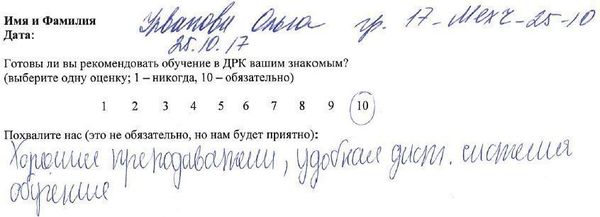 Имя и Фамилия Урванова Ольга гр. 17-Мехч-25-10
Дата: 25.10.17
Готовы ли вы рекомендовать обучение в ДРК вашим знакомым?
(выберите одну оценку; 1 – никогда, 10 – обязательно)
1 2 3 4 5 6 7 8 9 10
Похвалите нас (это не обязательно, но нам будет приятно):
Хорошие преподаватели, удобная дист. система
обучение